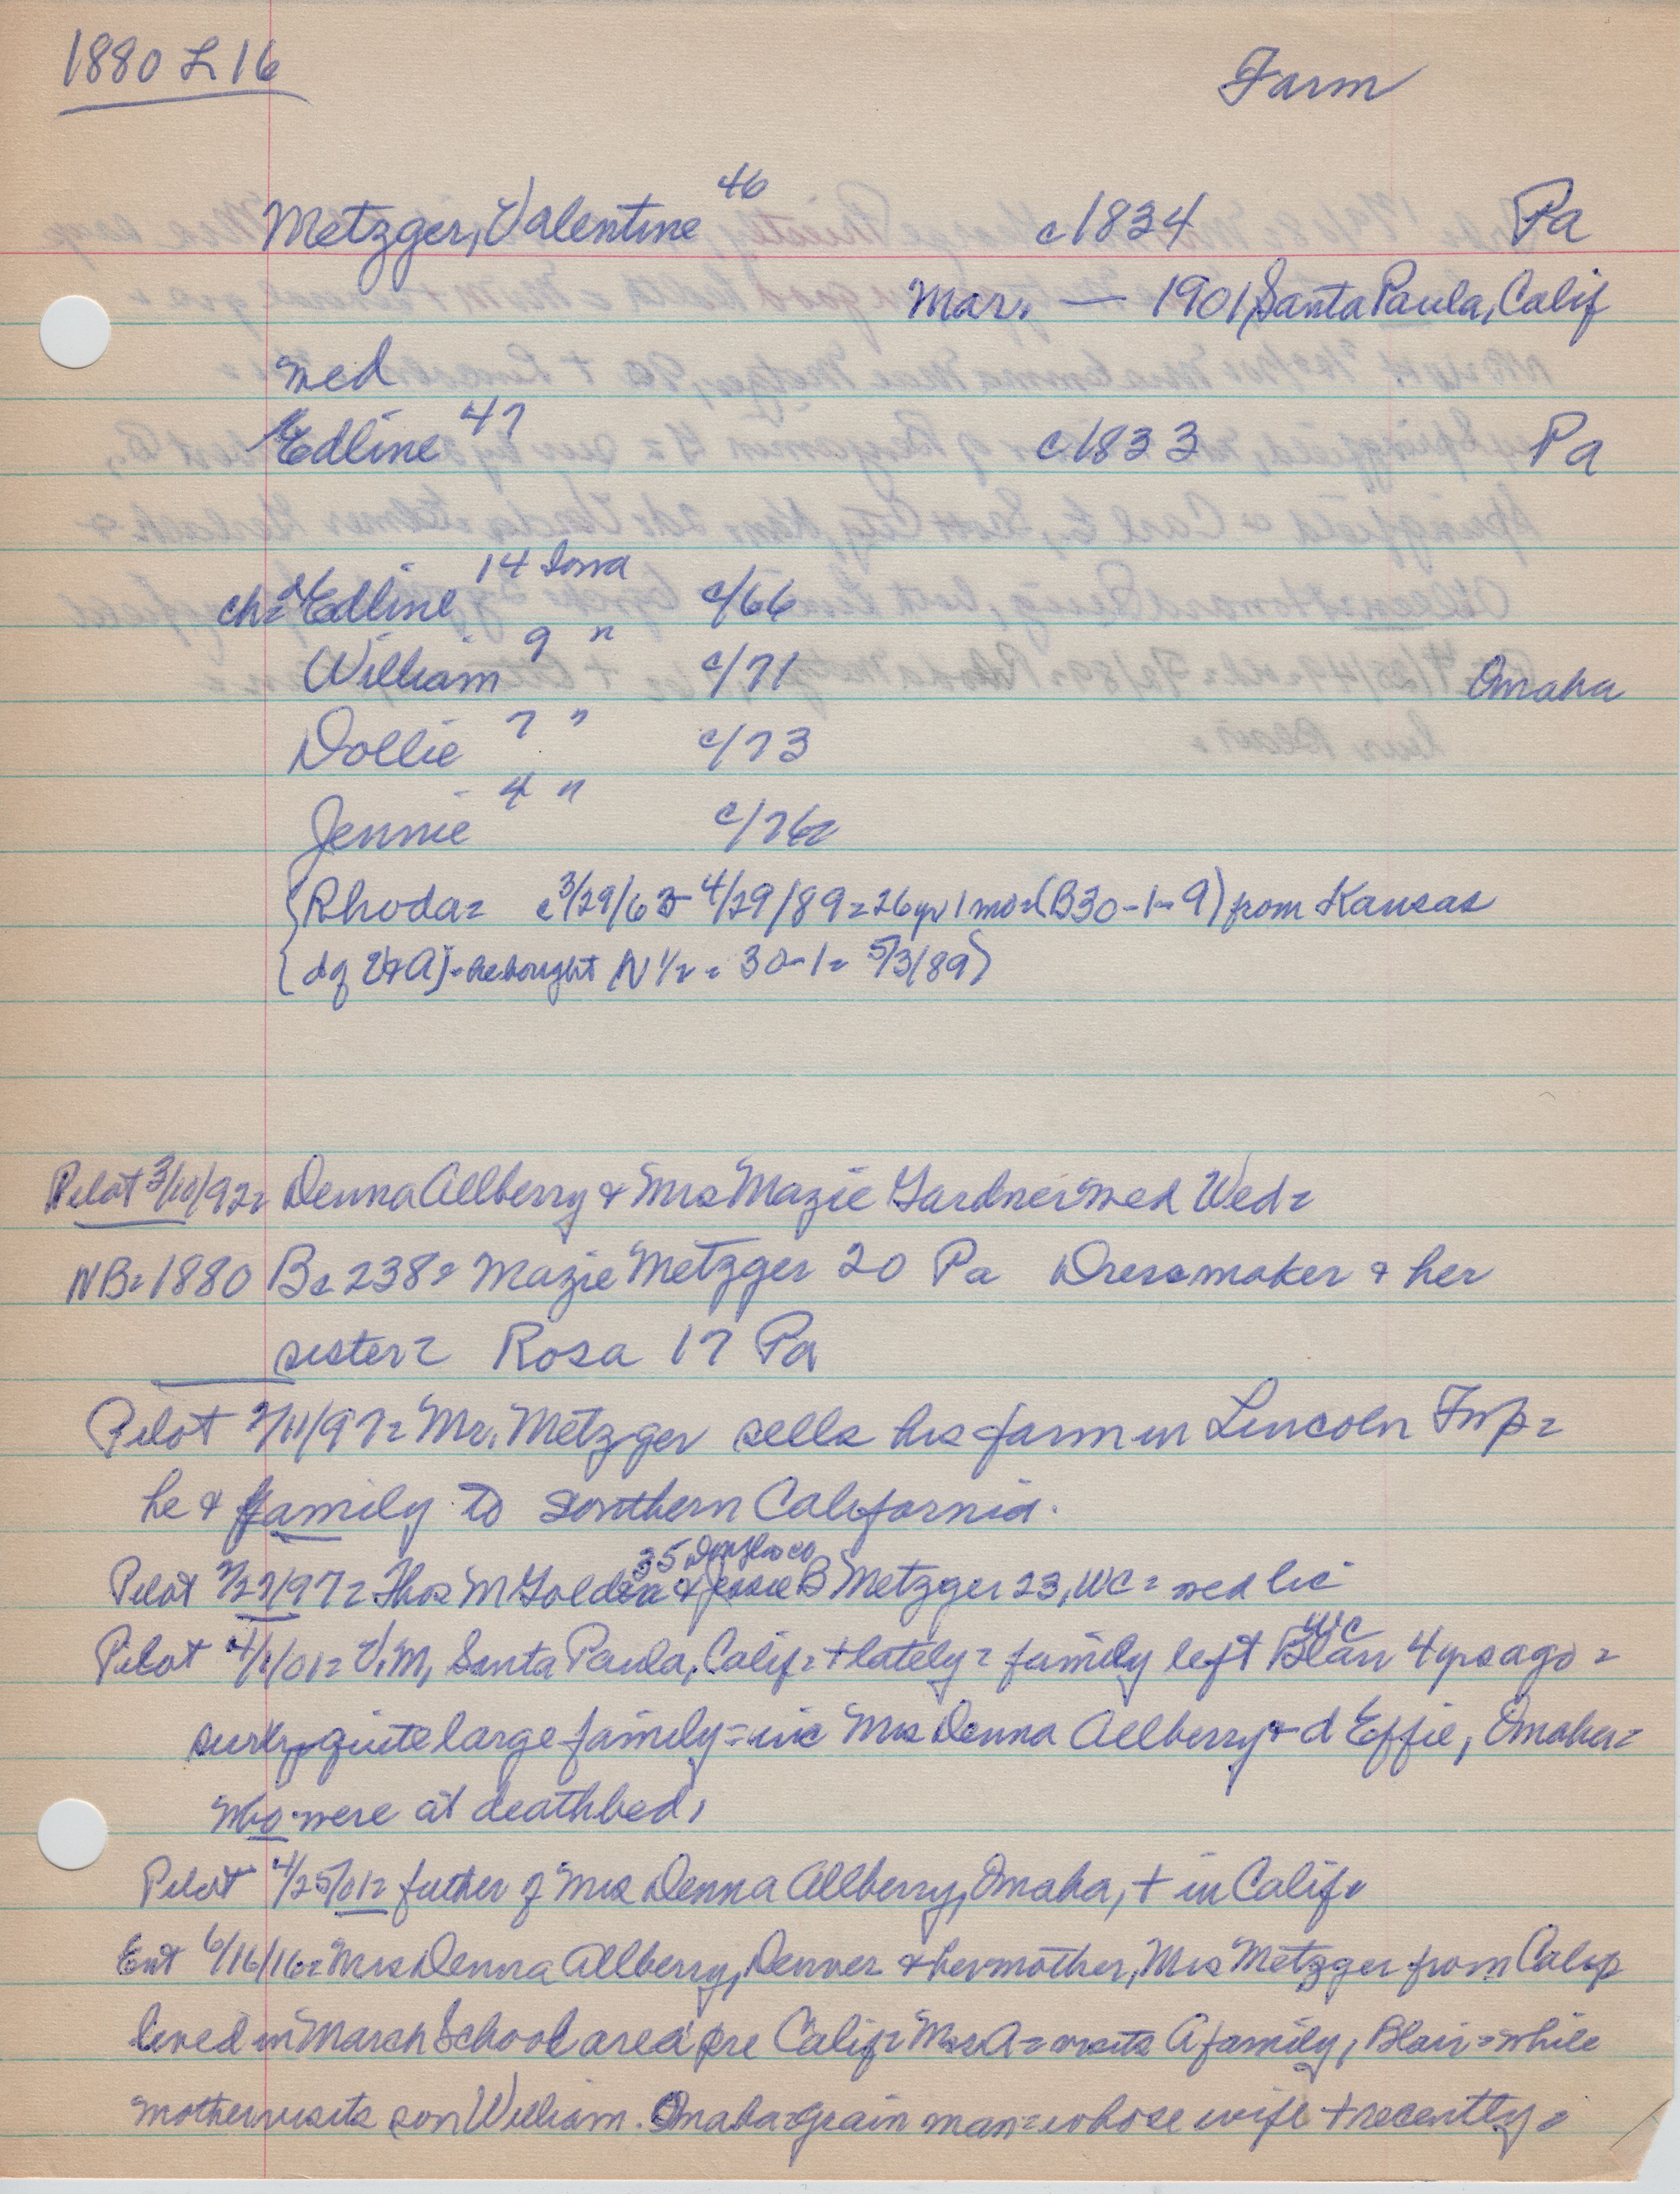 1880 L 16
Farm
Metzger, Valentine 46 c1834 Pa
Mar. — 1901, Santa Paula, Calif
wed
Edline 47 c1833 Pa
ch= Edline 14 Iowa c/66
William 9 " c/71 Omaha
Dollie 7 " c/73
Jennie 4 " c/76
Rhoda= c 3/29/63- 4/29/89=26yr 1 mo=(B30-1-9) from Kansas
d of V+A)= he bought N 1/2= 30-1= 5/3/89)
Pilot 3/10/92= Denna Allberry & Mrs Mazie Gardner wed Wed=
NB=1880 B=238= Mazie Metzger 20 Pa Dressmaker & her
sister= Rosa 17 Pa
Pilot 2/11/97= Mr. Metzger sells his farm in Lincoln Twp=
he & family to southern California.
35 Douglas co
Pilot 2/27/97= Thos M Golden & Jessie B Metzger 23, WC= wed lic
WC
Pilot 4/1/01= V.M, Santa Paula, Calif= + lately= family left Blair 4 yrs ago=
quite large family= inc Mrs Denna Allberry + d Effie, Omaha=
who were at deathbed,
Pilot 4/25/01= father of Mrs Denna Allberry, Omaha, + in Calif
Ent 6/16/16= Mrs Denna Allberry, Denver & her mother, Mrs Metzger from Calif
lived in March School area pre Calif= Mrs A= visits A family, Blair= while
mother visits son William. Omaha= grain man= whose wife + recently=